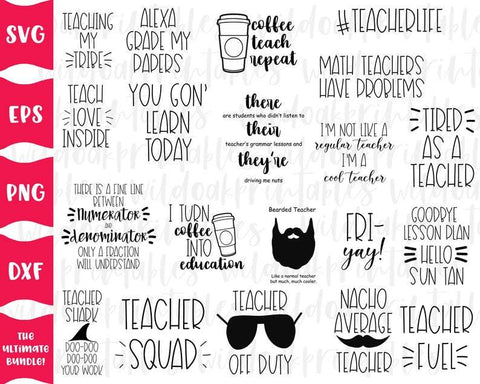 SVG
EPS
PNG
DXF
THE
ULTIMATE
BUNDLE!
TEACHING
MY
TRIBE
ALEXA
GRADE MY
PAPERS
coffee
teach
repeat
#TEACHERLIFE
MATH TEACHERS
HAVE PROBLEMS
TEACH
LOVE
INSPIRE
YOU GON'
LEARN
TODAY
there
are students who didn't listen to
their
teacher's grammar lessons and
they're
driving me nuts
I'M NOT LIKE A
regular teacher
I'M A
cool teacher
TIRED
AS A
TEACHER
THERE IS A FINE LINE
BETWEEN
Numerator
and
denominator
ONLY A FRACTION
WILL UNDERSTAND
I TURN
coffee
INTO
education
Bearded Teacher
Like a normal teacher
but much, much cooler.
FRI-
yay!
GOODBYE
LESSON PLAN
HELLO
SUN TAN
TEACHER
SHARK
DOO-DOO
DOO-DOO
YOUR WORK
TEACHER
SQUAD
TEACHER
OFF DUTY
NACHO
AVERAGE
TEACHER
TEACHER
FUEL
wildoakprintables